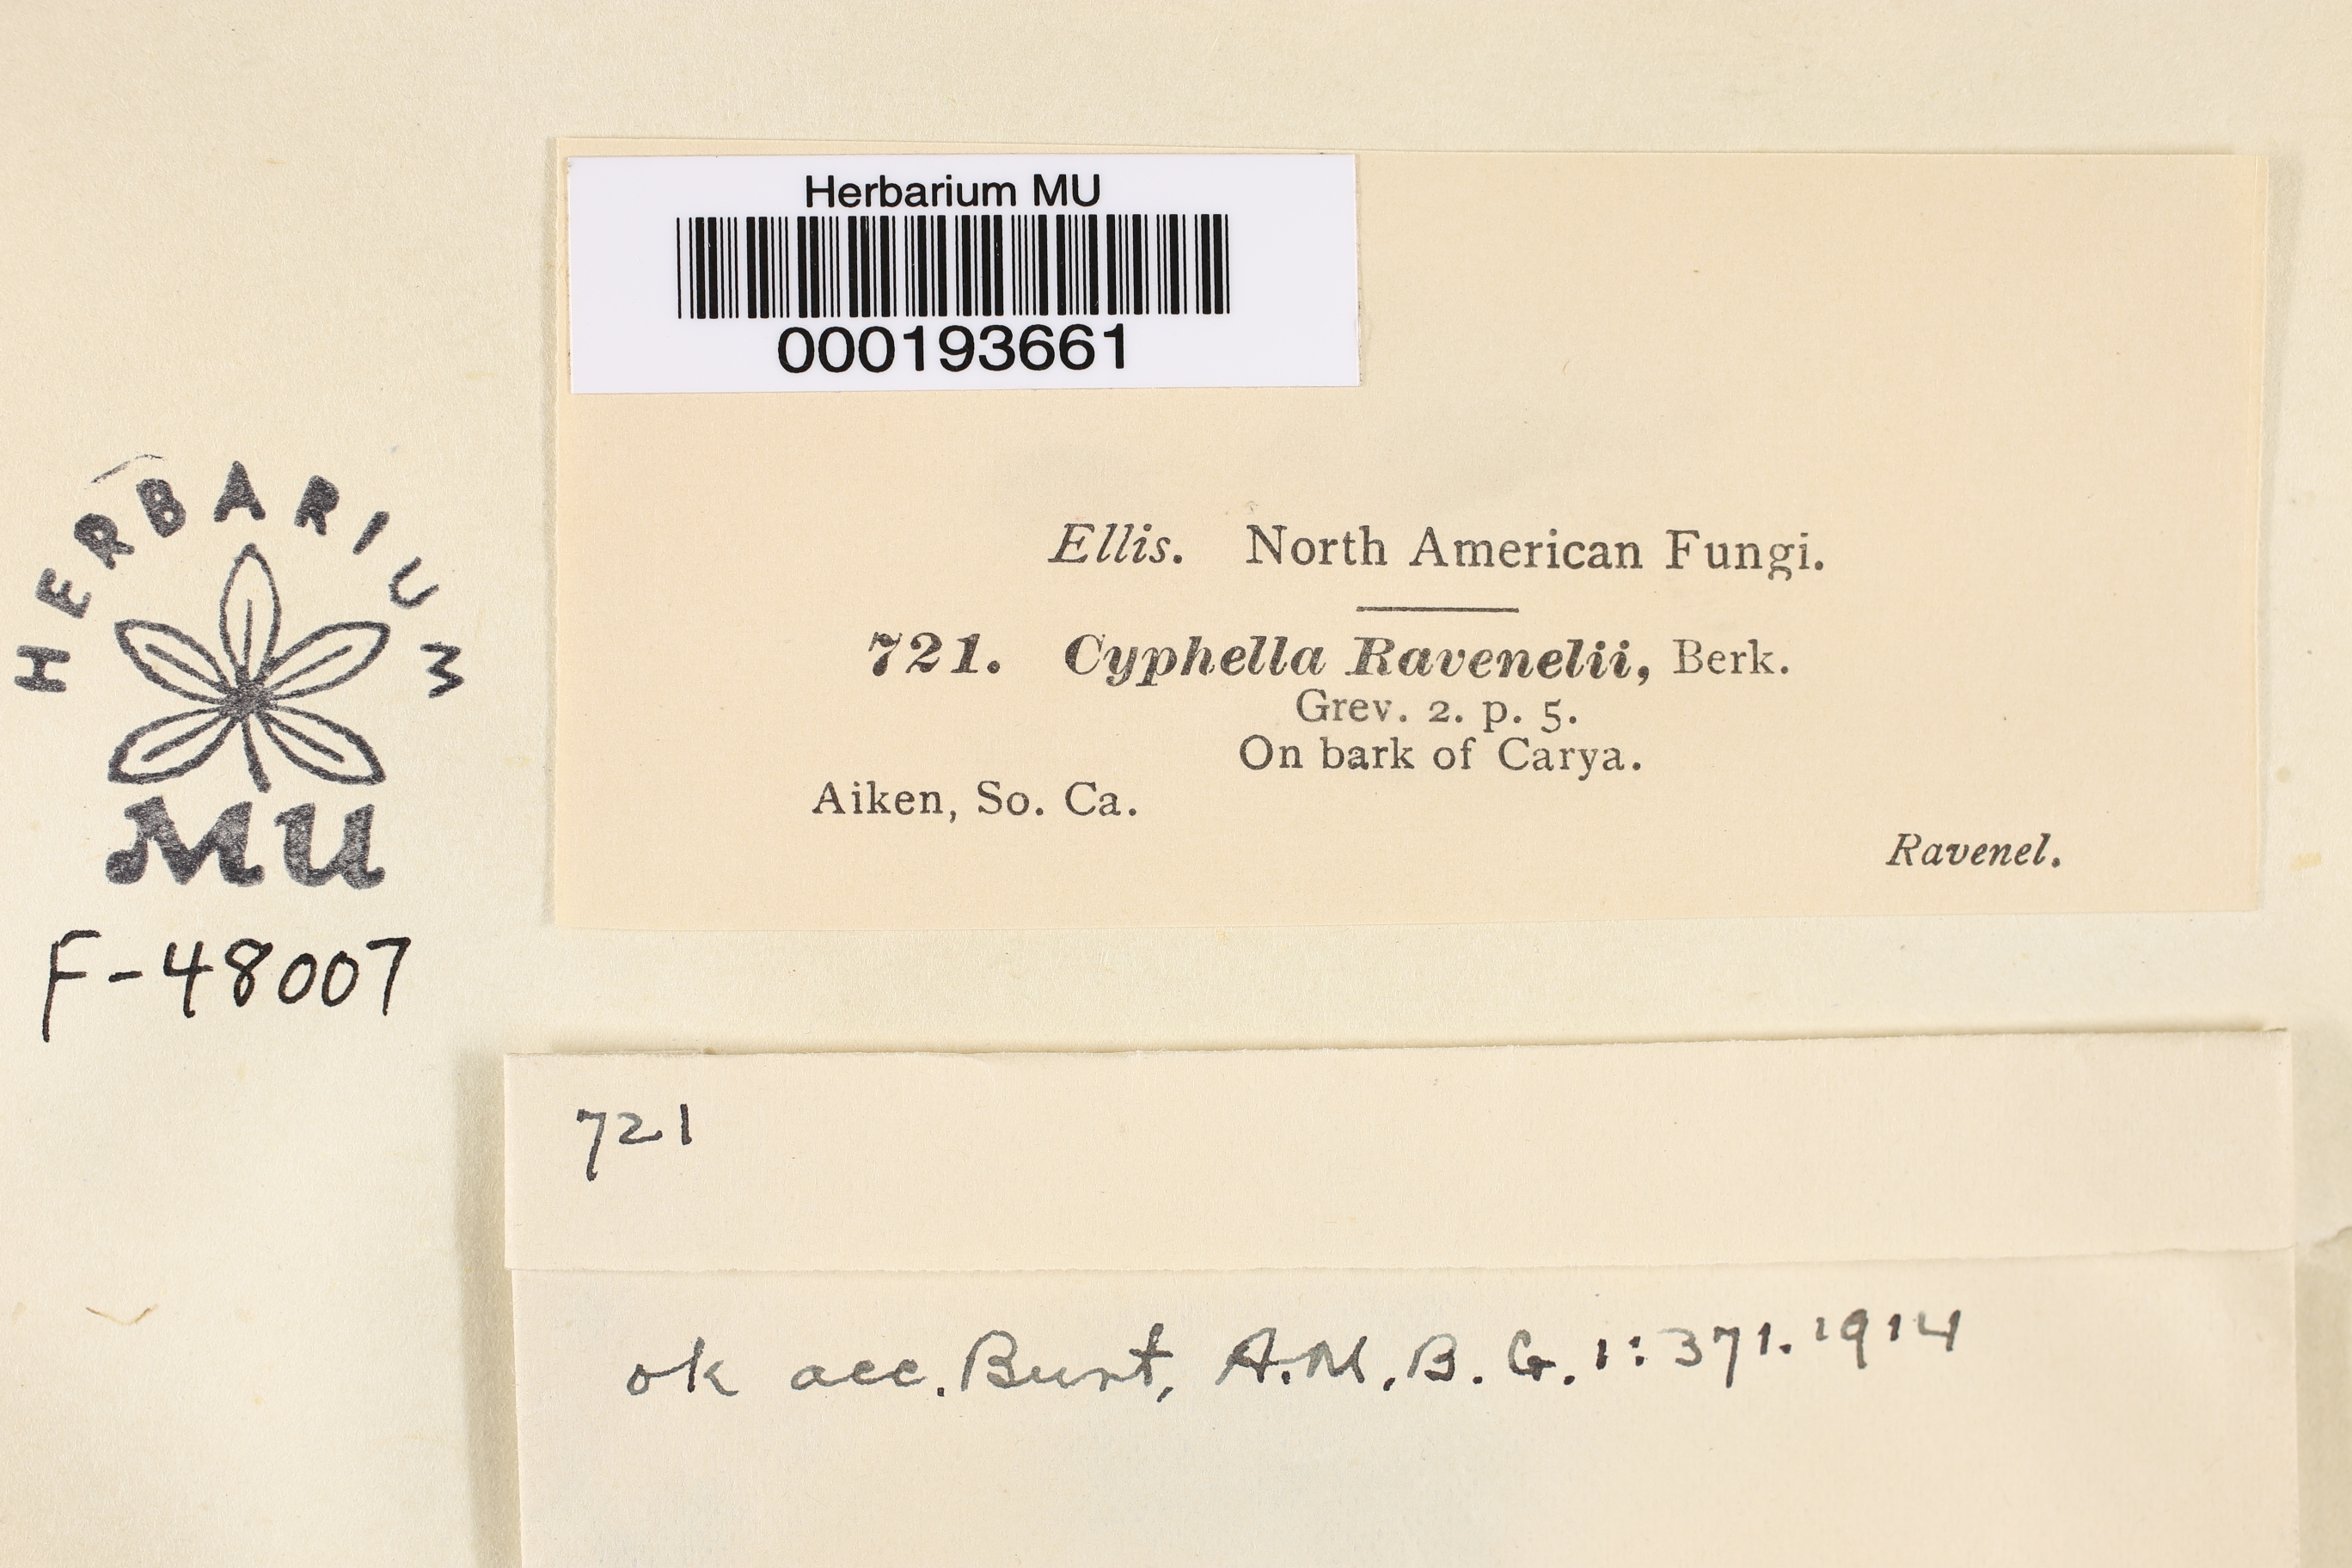 Herbarium MU
000193661
Ellis. North American Fungi.
721. Cyphella Ravenelii, Berk.
Grev. 2. p. 5.
On bark of Carya.
Aiken, So. Ca.
Ravenel.
HERBARIUM
MU
F-48007
721
ok acc. Burt, A.M.B.G. 1: 371. 1914